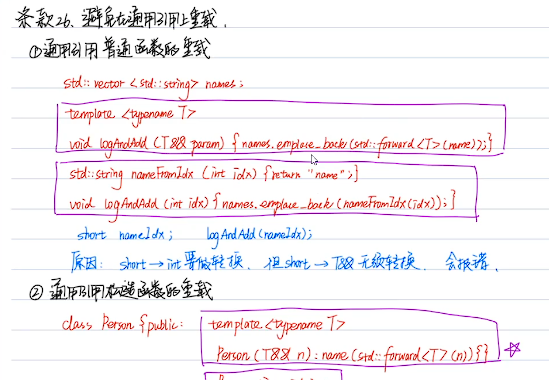 条款26. 避免在通用引用上重载.
①通用引用普通函数的重载
std::vector <std::string> names;
template <typename T>
void logAndAdd (T&& param) { names.emplace_back(std::forward<T>(name));}
std::string nameFromIdx (int idx) {return "name";}
void logAndAdd (int idx) {names.emplace_back(nameFromIdx(idx));}
short nameIdx; logAndAdd(nameIdx);
原因: short→int 要做转换. 但short→T&& 无须转换. 会报错.
② 通用引用构造函数的重载
class Person {public: template <typename T>
Person (T&& n): name (std::forward<T>(n)){}